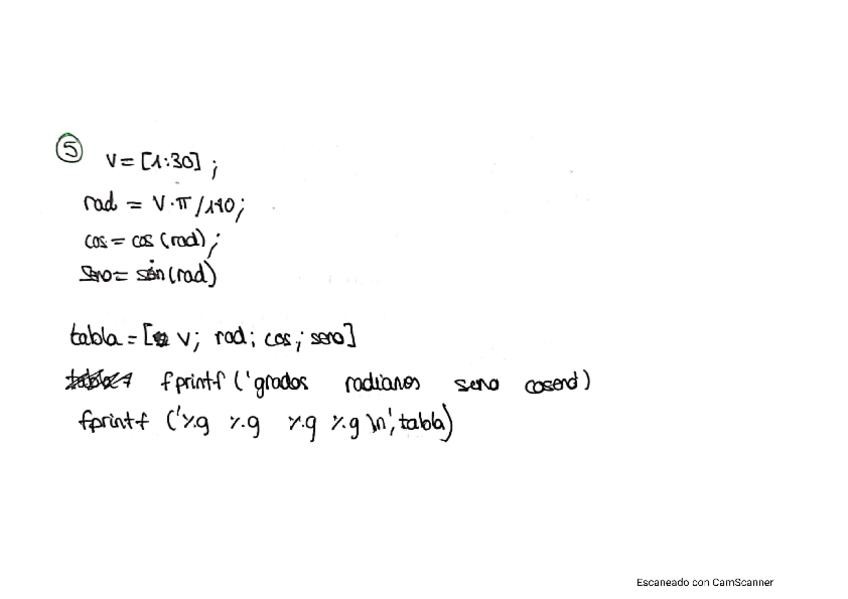 ⑤ V = [1:30] ;
rad = V·π/180;
cos = cos (rad);
seno = sin (rad)
tabla = [ v; rad; cos; seno]
fprintf ('grados radianes seno coseno')
fprintf ('%g %g %g %g \n', tabla)
Escaneado con CamScanner